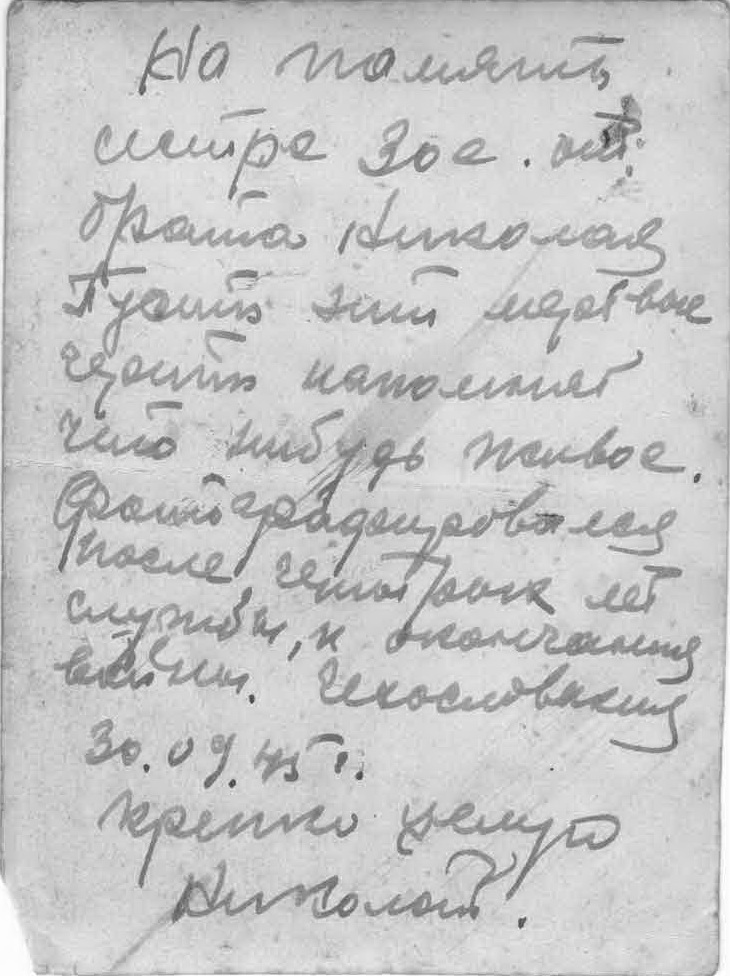 На память
сестре Зое. от
брата Николая
Пусть эти мертвые
черты напомнят
что нибудь живое.
Фотографировался
после четырёх лет
службы, и окончания
войны. Чехословакия
30.09.45 г.
крепко целую
Николай.